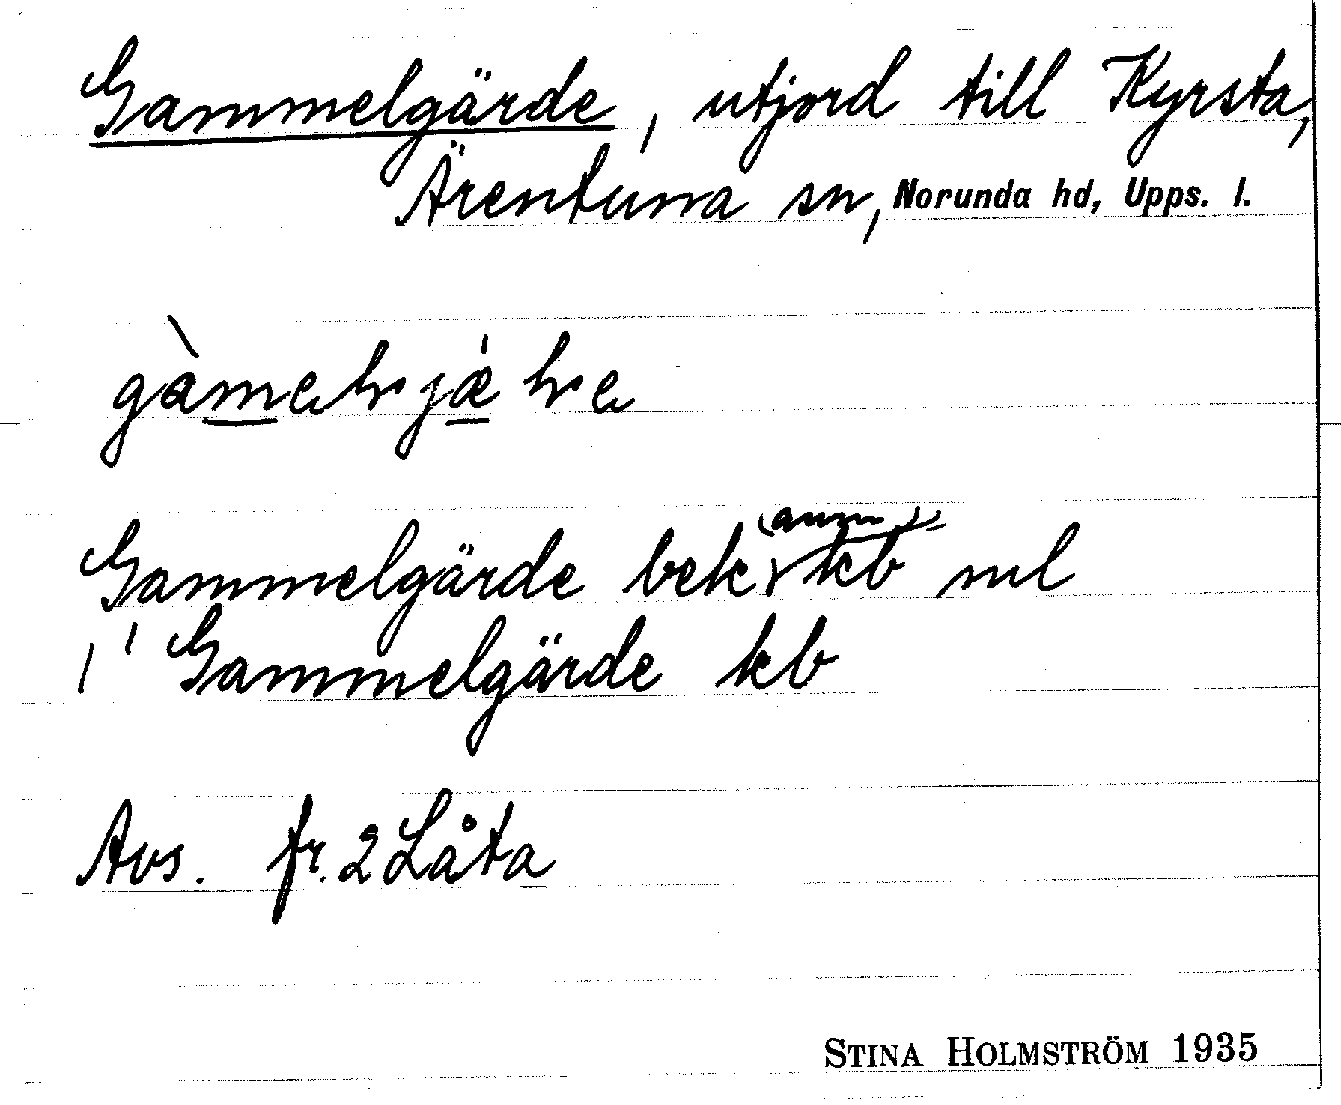 Gammelgärde, utjord till Kyrsta,
Ärentuna sn, Norunda hd, Upps. l.
Gammelgärde bek, kb ml
Gammelgärde kb
Avs. fr. 2 Låta
STINA HOLMSTRÖM 1935